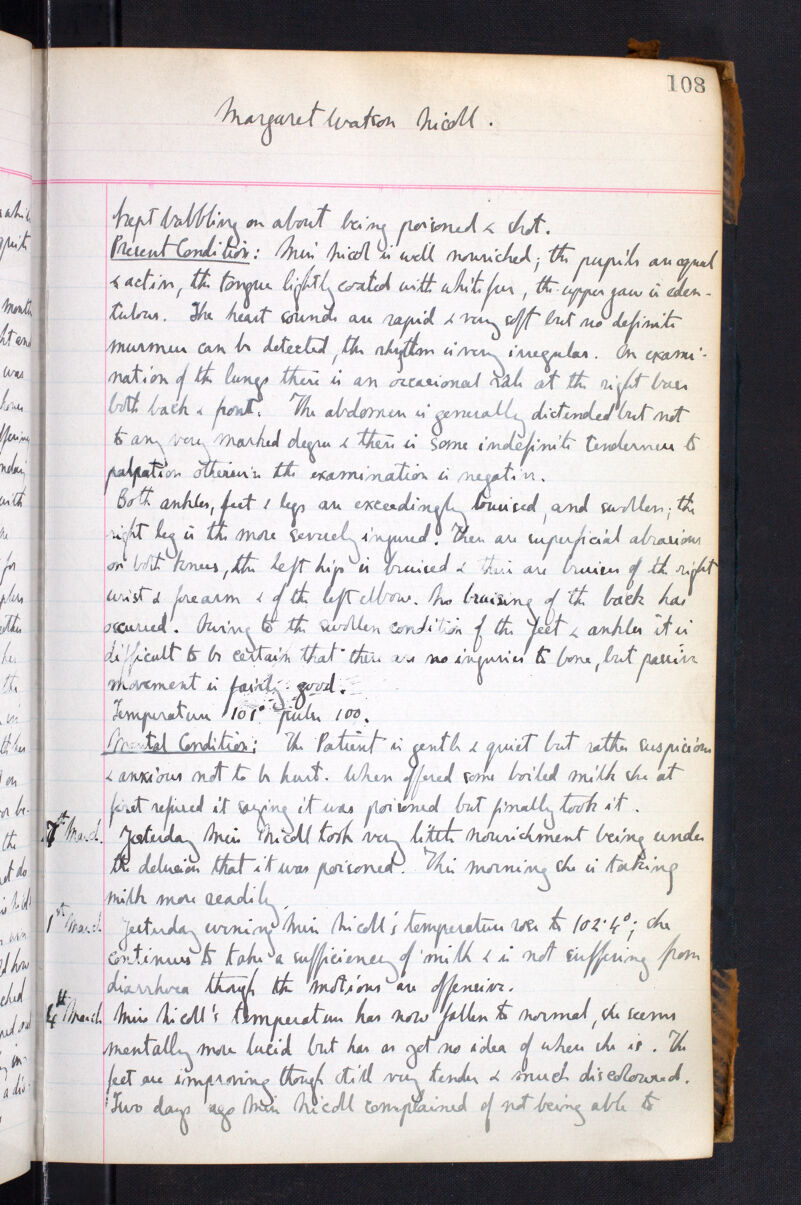 108
Margaret Watson Nicoll.
kept babbling on about being poisoned & shot.
Present Condition: Miss Nicol is well nourished; the pupils are equal
& active, the tongue lightly coated with white fur, the upper jaw is eden-
tulous. The heart sounds are rapid & very soft but no definite
murmur can be detected, the rhythm is very irregular. On exami-
nation of the lungs there is an occasional rale at the right base
both back & front. The abdomen is generally distended but not
to any very marked degree & there is some indefinite tenderness to
palpation otherwise the examination is negative.
Both ankles, feet & legs are exceedingly bruised, and swollen; the
right leg is the more severely injured. There are superficial abrasions
on both knees, the left hip is bruised & there are bruises of the right
wrist & forearm & of the left elbow. No bruising of the back has
occurred. Owing to the swollen condition of the feet & ankles it is
difficult to be certain that there are no injuries to bone, but passive
movement is fairly good.
Temperature 101° pulse 100.
Mental Condition: The Patient is gentle & quiet but rather suspicious
& anxious not to be hurt. When offered some boiled milk she at
first refused it saying it was poisoned but finally took it.
March. Yesterday Miss Nicoll took very little nourishment being under
the delusion that it was poisoned. This morning she is taking
milk more readily.
1st March Yesterday evening Miss Nicoll's temperature rose to 102·4°; she
continues to take a sufficiency of milk & is not suffering from
diarrhoea though the motions are offensive.
4th March Miss Nicoll's temperature has now fallen to normal, she seems
mentally more lucid but has as yet no idea of where she is. The
feet are improving though still very tender & much discoloured.
Two days ago Miss Nicoll complained of not being able to